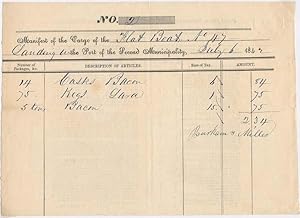 NO. 21
Manifest of the Cargo of the Flat Boat No 47
Landing in the Port of the Second Municipality, July 6 184
Number of Packages, &c. DESCRIPTION OF ARTICLES. Rate of Duty. AMOUNT.
14 Casks Bacon 54
75 Kegs Lard 1 75
5 tons Bacon 15 75
2 34
Durham & Miller